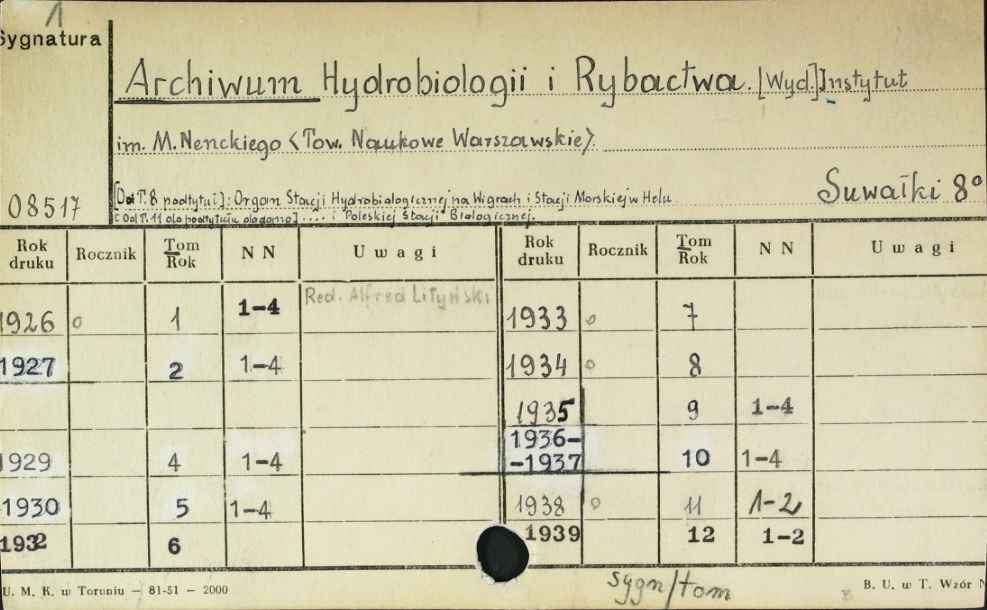 1
Sygnatura
Archiwum Hydrobiologii i Rybactwa. [Wyd.] Instytut
im. M. Nenckiego <Tow. Naukowe Warszawskie>.
[Od T. 8 podtytuł]: Organ Stacji Hydrobiologicznej na Wigrach i Stacji Morskiej w Helu
[Od T. 11 do podtytułu dodano] .... i Poleskiej Stacji Biologicznej.
08517
Suwałki 8°
Rok druku Rocznik Tom Rok N N Uwagi Rok druku Rocznik Tom Rok N N Uwagi
1926 o 1 1-4 Red. Alfred Lityński 1933 o 7
1927 2 1-4 1934 o 8
1935 9 1-4
1929 4 1-4 1936-
-1937 10 1-4
1930 5 1-4 1938 o 11 1-2
1932 6 1939 12 1-2
sygn/tom
U. M. K. w Toruniu — 81-51 — 2000
B. U. w T. Wzór N